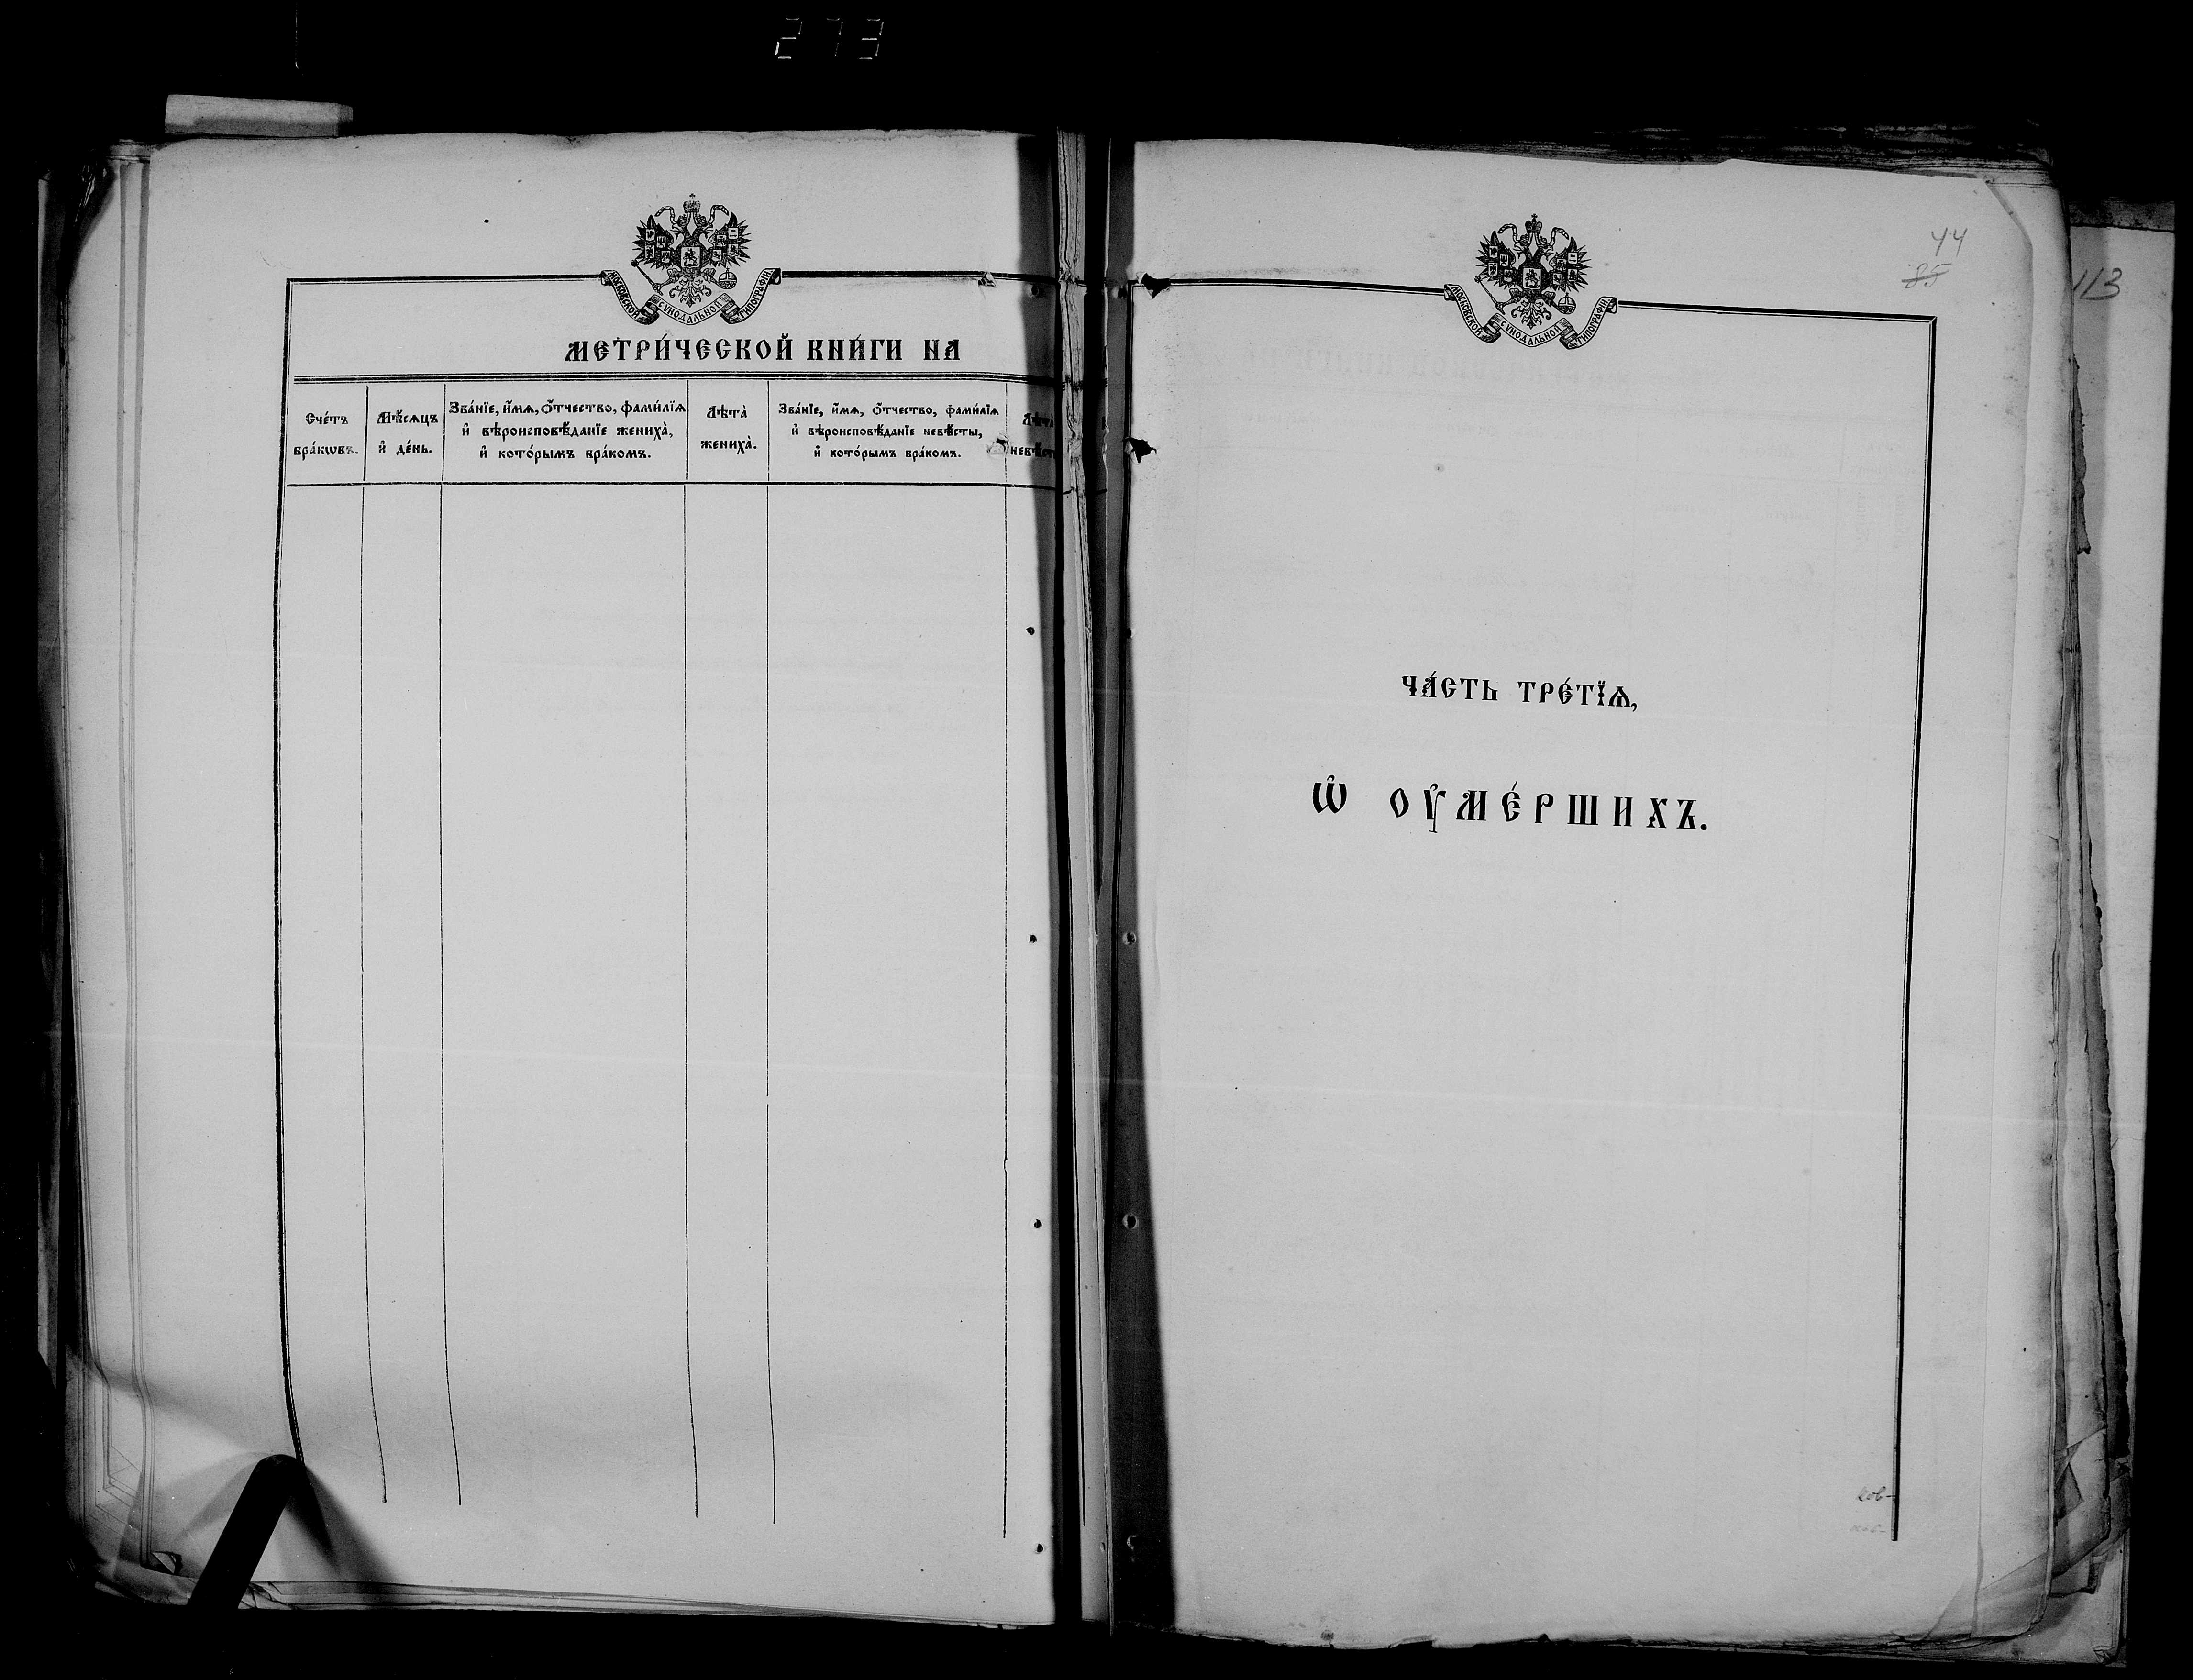 273
МОСКОВСКОЙ СѴНОДАЛЬНОЙ ТИПОГРАФІИ
МЕТРИ́ЧЕСКОЙ КНИ́ГИ НА
Сче́тъ
бра́кѡвъ.
Мѣ́сѧцъ
и҆ де́нь.
Зва́нїе, и҆́мѧ, ѻ҆́тчество, фамі́лїѧ
и҆ вѣроисповѣ́данїе жениха̀,
и҆ кото́рымъ бра́комъ.
Лѣта̀
жениха̀.
Зва́нїе, и҆́мѧ, ѻ҆́тчество, фамі́лїѧ
и҆ вѣроисповѣ́данїе невѣ́сты,
и҆ кото́рымъ бра́комъ.
Лѣта̀
44
85
113
МОСКОВСКОЙ СѴНОДАЛЬНОЙ ТИПОГРАФІИ
ЧА́СТЬ ТРЕ́ТЇѦ,
Ѡ҆ ОУ҆МЕ́РШИХЪ.